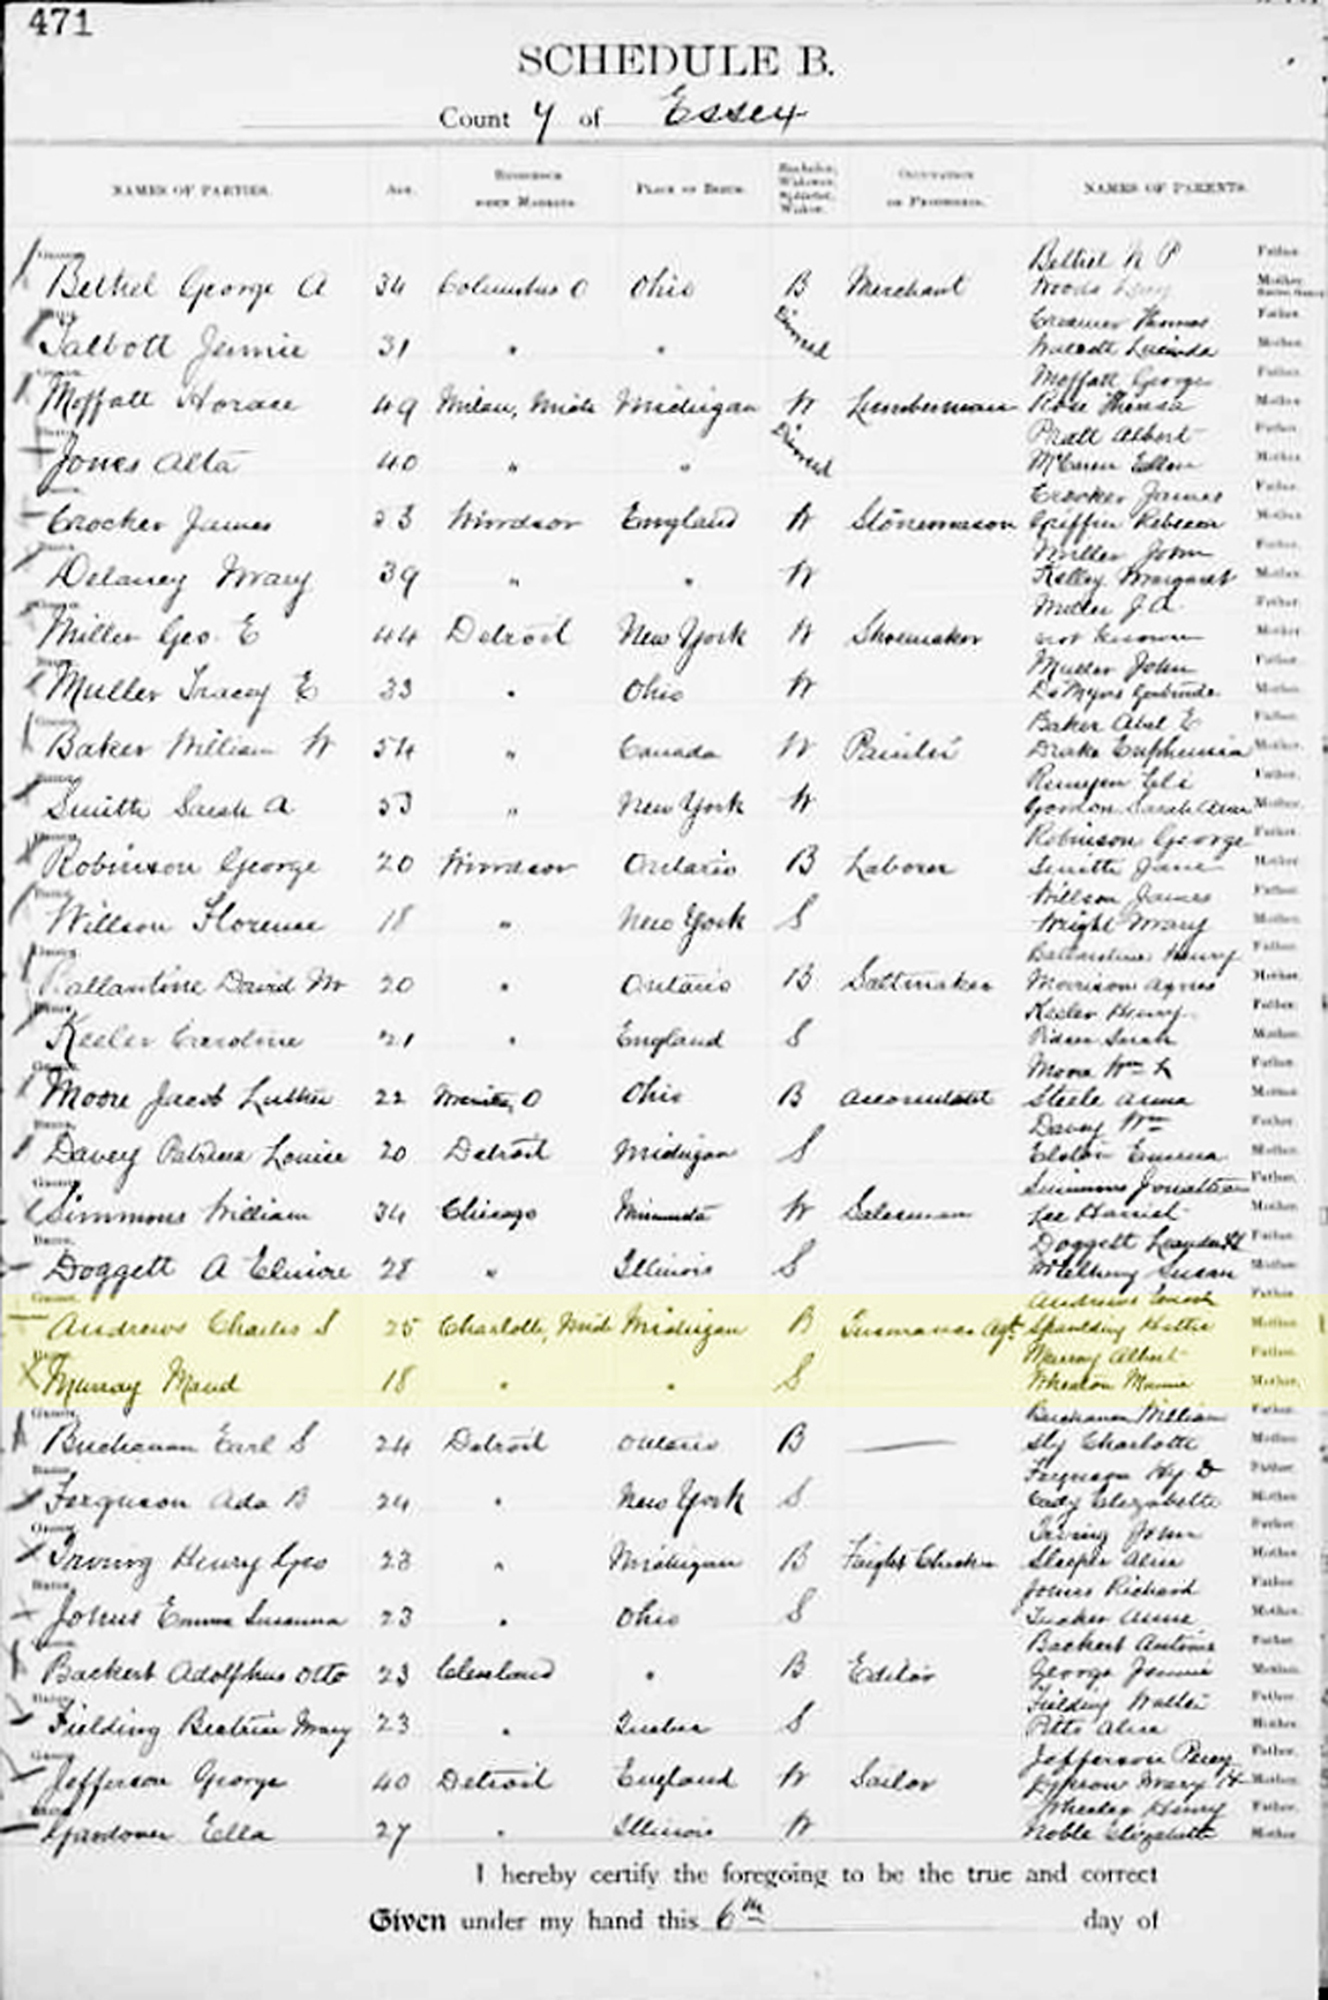 471
SCHEDULE B.
County of Essex
NAMES OF PARTIES. AGE. RESIDENCE WHEN MARRIED. PLACE OF BIRTH. Bachelor, Widower, Spinster, Widow. OCCUPATION OR PROFESSION. NAMES OF PARENTS.
Groom. Bethel N P Father.
Bethel George A 34 Columbus O Ohio B Merchant Woods Mother.
Creamer Thomas Father.
Talbott Jennie 31 " " Divorced Walcott Lucinda Mother.
Moffatt George Father.
Moffatt Horace 49 Milan, Mich Michigan W Lumberman Rose Theresa Mother.
Pratt Albert Father.
Jones Alta 40 " " Divorced Ellen Mother.
Crocker James Father.
Crocker James 53 Windsor England W Stonemason Griffin Rebecca Mother.
Miller John Father.
Delaney Mary 39 " " W Kelley Margaret Mother.
Miller J A Father.
Miller Geo E 44 Detroit New York W Shoemaker not known Mother.
Muller John Father.
Muller Tracey E 33 " Ohio W DeMyers Gertrude Mother.
Baker Abel E Father.
Baker William W 54 " Canada W Painter Drake Euphemia Mother.
Eli Father.
Smith Sarah A 53 " New York W Gordon Sarah Ann Mother.
Robinson George Father.
Robinson George 20 Windsor Ontario B Laborer Smith Jane Mother.
Willson James Father.
Willson Florence 18 " New York S Wright Mary Mother.
Ballantine Henry Father.
Ballantine David M 20 " Ontario B Saltmaker Morrison Agnes Mother.
Keeler Henry Father.
Keeler Caroline 21 " England S Sarah Mother.
Moore Wm L Father.
Moore Jacob Luther 22 O Ohio B Accountant Steele Anna Mother.
Davey Wm Father.
Davey Patricia Louise 20 Detroit Michigan S Elston Emma Mother.
Simmons Jonathan Father.
Simmons William 34 Chicago W Salesman Lee Harriet Mother.
Doggett Father.
Doggett A Elmore 28 " Illinois S Susan Mother.
Andrews Enoch Father.
Andrews Charles S 25 Charlotte, Mich Michigan B Insurance Agt Spaulding Hattie Mother.
Murray Albert Father.
Murray Maud 18 " " S Wheaton Mamie Mother.
Buchanan William Father.
Buchanan Earl S 24 Detroit Ontario B — Sly Charlotte Mother.
Ferguson Hy D Father.
Ferguson Ada B 24 " New York S Cady Elizabeth Mother.
Irving John Father.
Irving Henry Geo 23 " Michigan B Sleeper Alice Mother.
Johns Richard Father.
Johns Emma Susanna 23 " Ohio S Tucker Anna Mother.
Backert Antoine Father.
Backert Adolphus Otto 23 Cleveland " B Editor George Jennie Mother.
Fielding Walter Father.
Fielding Beatrice Mary 23 " Quebec S Pitts Alice Mother.
Jefferson Percy Father.
Jefferson George 40 Detroit England W Sailor Mary H Mother.
Wheeler Henry Father.
Ella 27 " Illinois W Noble Elizabeth Mother.
I hereby certify the foregoing to be the true and correct
Given under my hand this 6th day of